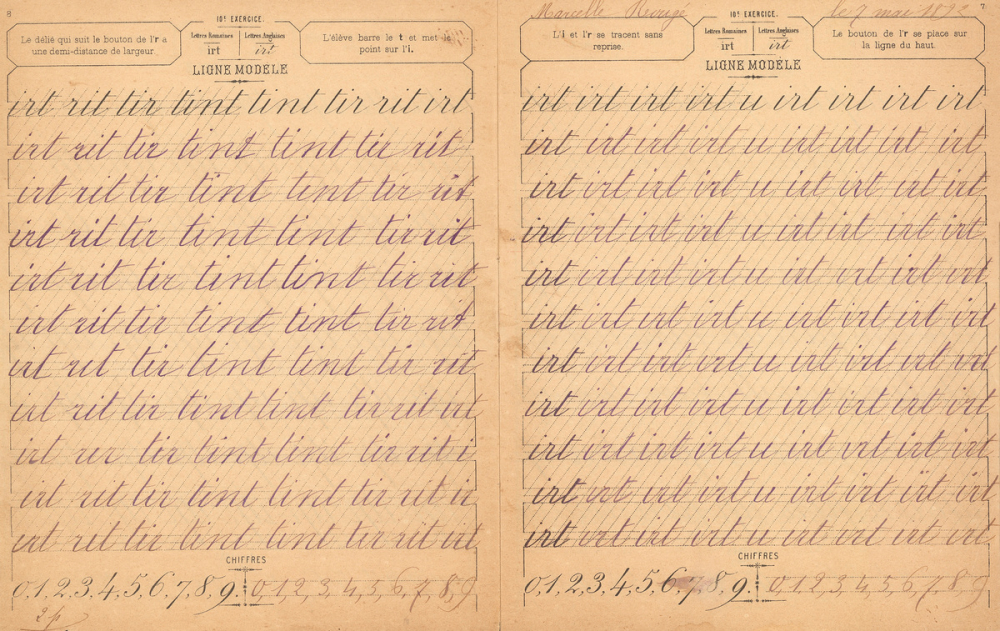 8
10e EXERCICE.
Le délié qui suit le bouton de l'r a
une demi-distance de largeur
Lettres Romaines Lettres Anglaises
irt irt
L'élève barre le t et met le
point sur l'i.
LIGNE MODÈLE
irt rit tir tint tint tir rit irt
irt rit tir tint tint tir rit
irt rit tir tint tint tir rit
irt rit tir tint tint tir rit
irt rit tir tint tint tir rit
irt rit tir tint tint tir rit
irt rit tir tint tint tir rit
irt rit tir tint tint tir rit irt
irt rit tir tint tint tir rit i
irt rit tir tint tint tir rit ir
irt rit tir tint tint tir rit irt
CHIFFRES
0,1,2,3,4,5,6,7,8,9. 0,1,2,3,4,5,6,7,8,9
7
Marcelle
le 7 mai
10e EXERCICE.
L'i et l'r se tracent sans
reprise.
Lettres Romaines Lettres Anglaises
irt irt
Le bouton de l'r se place sur
la ligne du haut.
LIGNE MODÈLE
irt irt irt irt u irt irt irt irt
irt irt irt irt u irt irt irt irt
irt irt irt irt u irt irt irt irt
irt irt irt irt u irt irt irt irt
irt irt irt irt u irt irt irt irt
irt irt irt irt u irt irt irt irt
irt irt irt irt u irt irt irt irt
irt irt irt irt u irt irt irt irt
irt irt irt irt u irt irt irt irt
irt irt irt irt u irt irt irt irt
irt irt irt irt u irt irt irt irt
CHIFFRES
0,1,2,3,4,5,6,7,8,9. 0,1,2,3,4,5,6,7,8,9